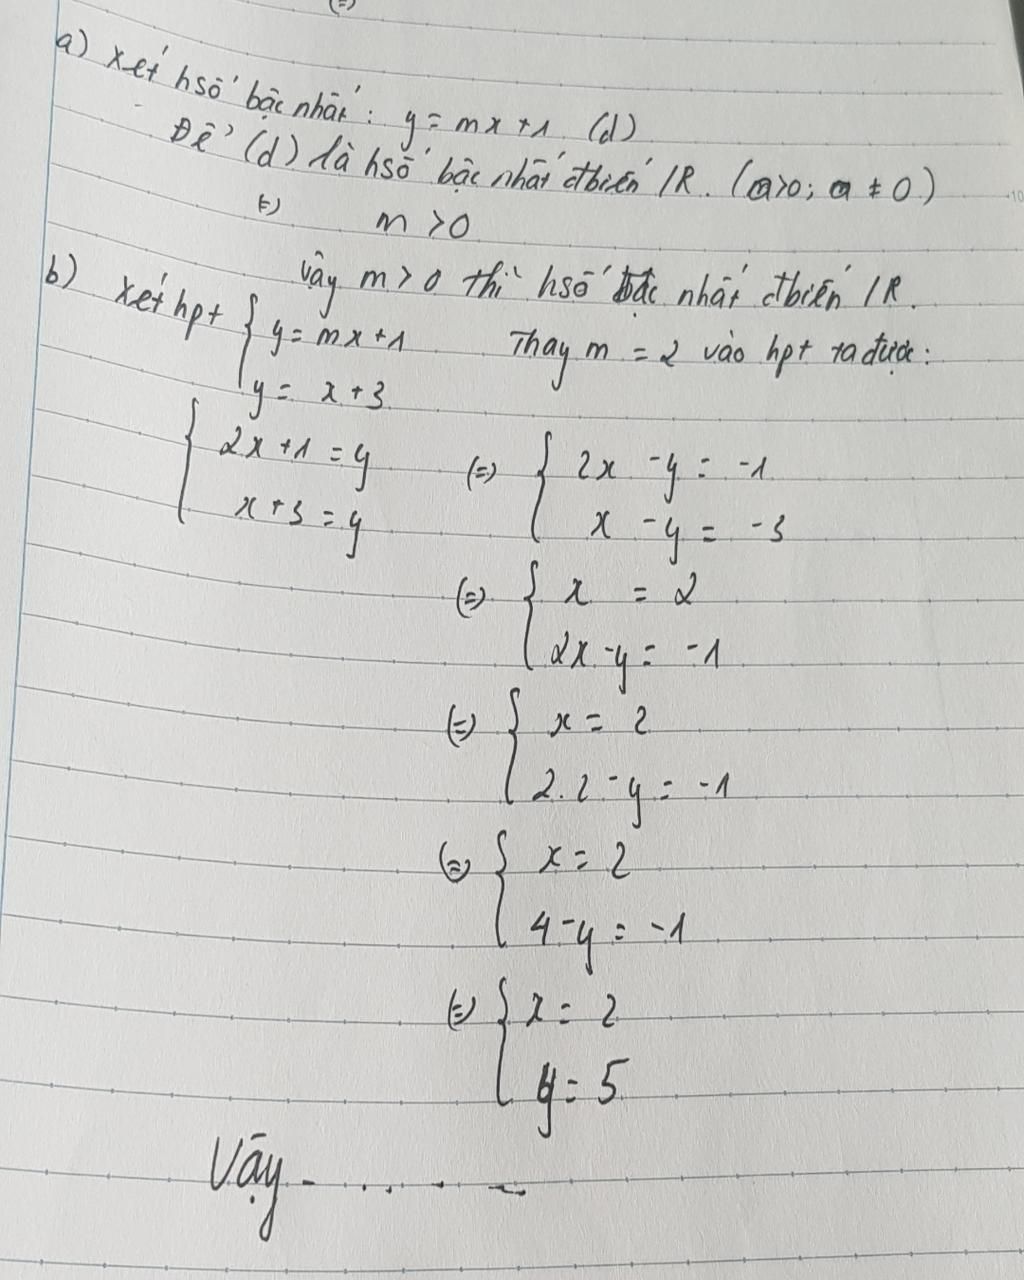 (=)
a) Xét hsố bậc nhất: y = mx + 1 (d)
Để (d) là hsố bậc nhất đbiến /R. (a>0; a ≠ 0)
(=) m > 0
Vậy m > 0 thì hsố bậc nhất đbiến /R.
b) Xét hpt { y = mx + 1 Thay m = 2 vào hpt ta được:
y = x + 3
{ 2x + 1 = y (=) { 2x - y = -1
x + 3 = y x - y = -3
(=) { x = 2
2x - y = -1
(=) { x = 2
2.2 - y = -1
(=) { x = 2
4 - y = -1
(=) { x = 2
y = 5
Vậy - . . . - -